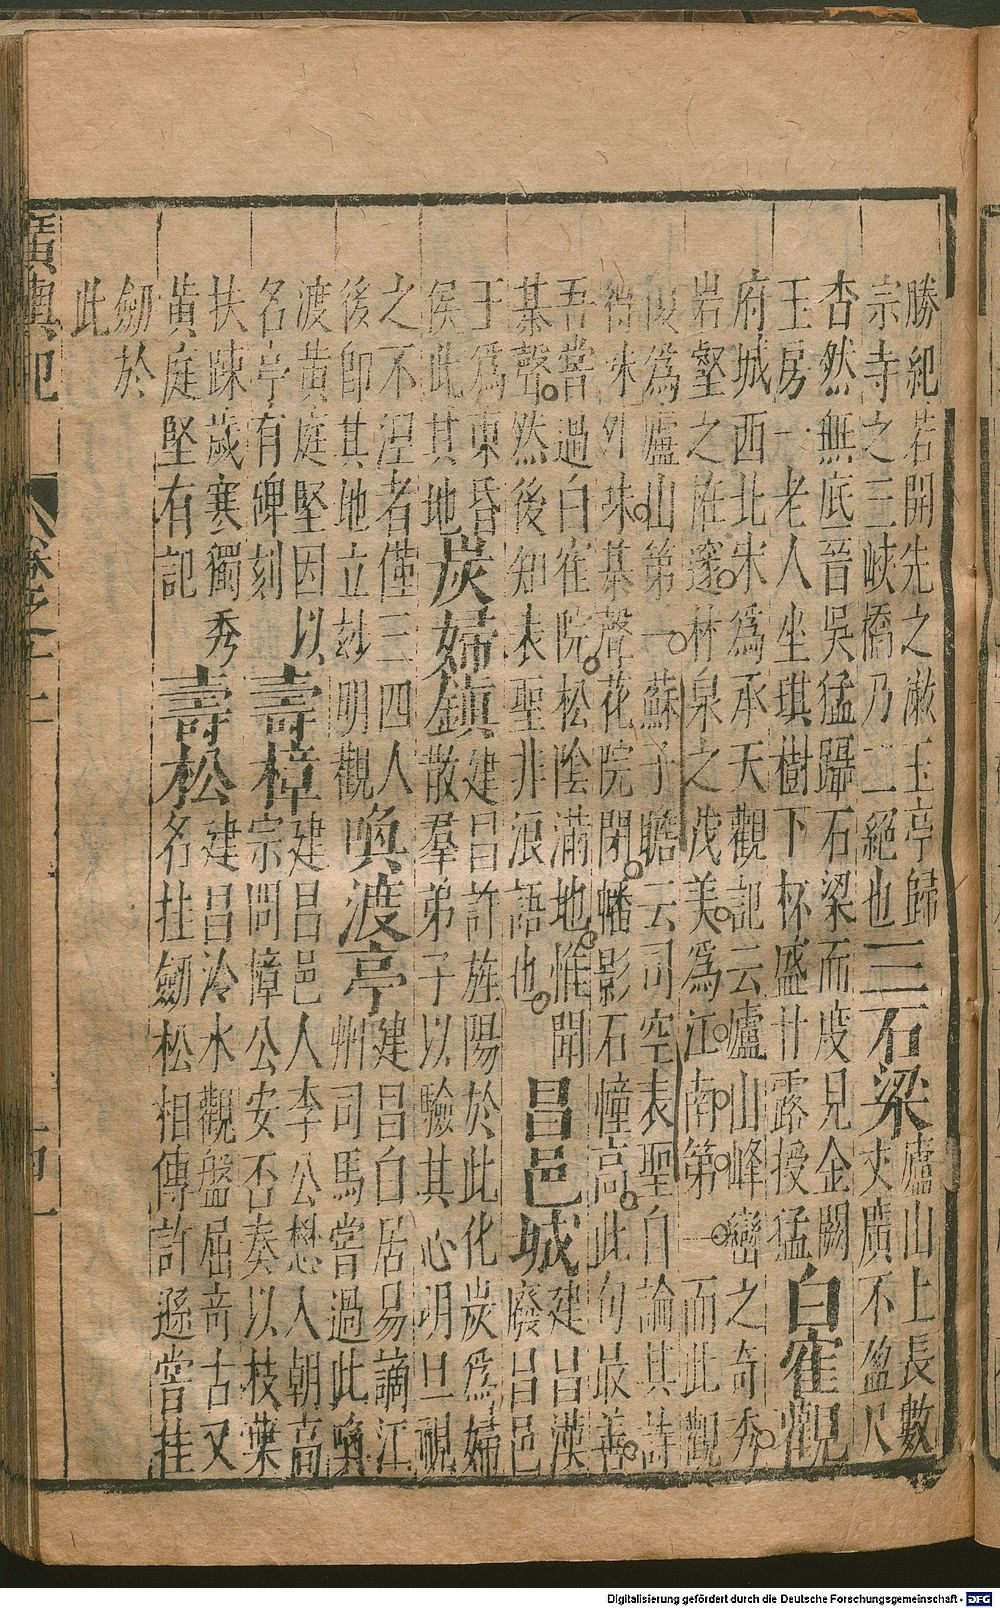 勝紀若開先之漱玉亭歸
宗寺之三峽橋乃二絕也
三石梁
廬山上長數
夾廣不盈尺
杳然無底晉吳猛躡石梁而度見金闕
玉房一老人坐琪樹下杯盛甘露授猛
白崔觀
府城西北宋為承天觀記云廬山峰巒之奇秀
岩壑之雄邃林泉之茂美為江南第一而此觀
復為廬山第一蘇子瞻云司空表聖自論其詩
得味外味棊聲花院閉幡影石幢高此句最善
吾嘗過白崔院松陰滿地惟聞
棊聲然後知表聖非浪語也
昌邑城
建昌漢
廢昌邑
王為東昏
侯此其地
炭婦鎮
建昌許旌陽於此化炭為婦
散羣弟子以驗其心明旦視
之不涅者僅三四人
後即其地立玅明觀
喚渡亭
建昌白居易謫江
州司馬嘗過此喚
渡黃庭堅因以
名亭有碑刻
壽樟
建昌邑人李公懋入朝高
宗問樟公安否奏以枝葉
扶踈歲寒獨秀
黃庭堅有記
壽松
建昌泠水觀盤屈奇古又
名挂劒松相傳許遜嘗挂
劒於
此
廣輿記
卷之
Digitalisierung gefördert durch die Deutsche Forschungsgemeinschaft - DFG